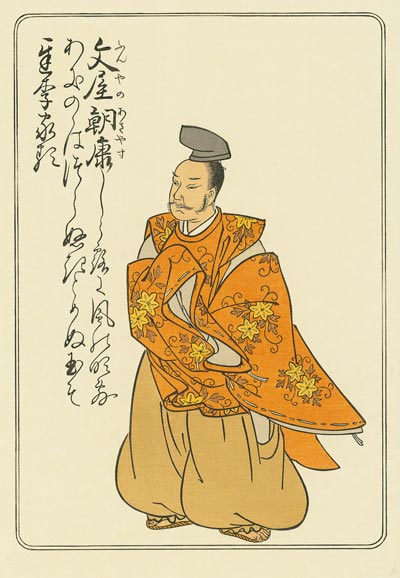 文屋朝康
ふんやのあさやす
しら露に風の吹しく
あきのゝはつらぬきとめぬ玉そ
ちりける